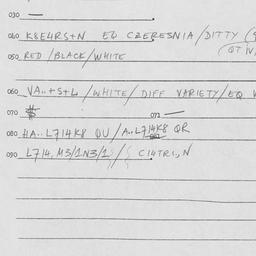 030 —
040 K8E4RS+N EQ CZERESNIA / DITTY (
(QT IV,
050 RED / BLACK / WHITE
060 VA..+S+L / WHITE / DIFF VARIETY / EQ
070 # 072 —
080 #A..L714K8 QU / A..L714K8 QR
090 L714, M3/1N3/1 / C14TRI, N